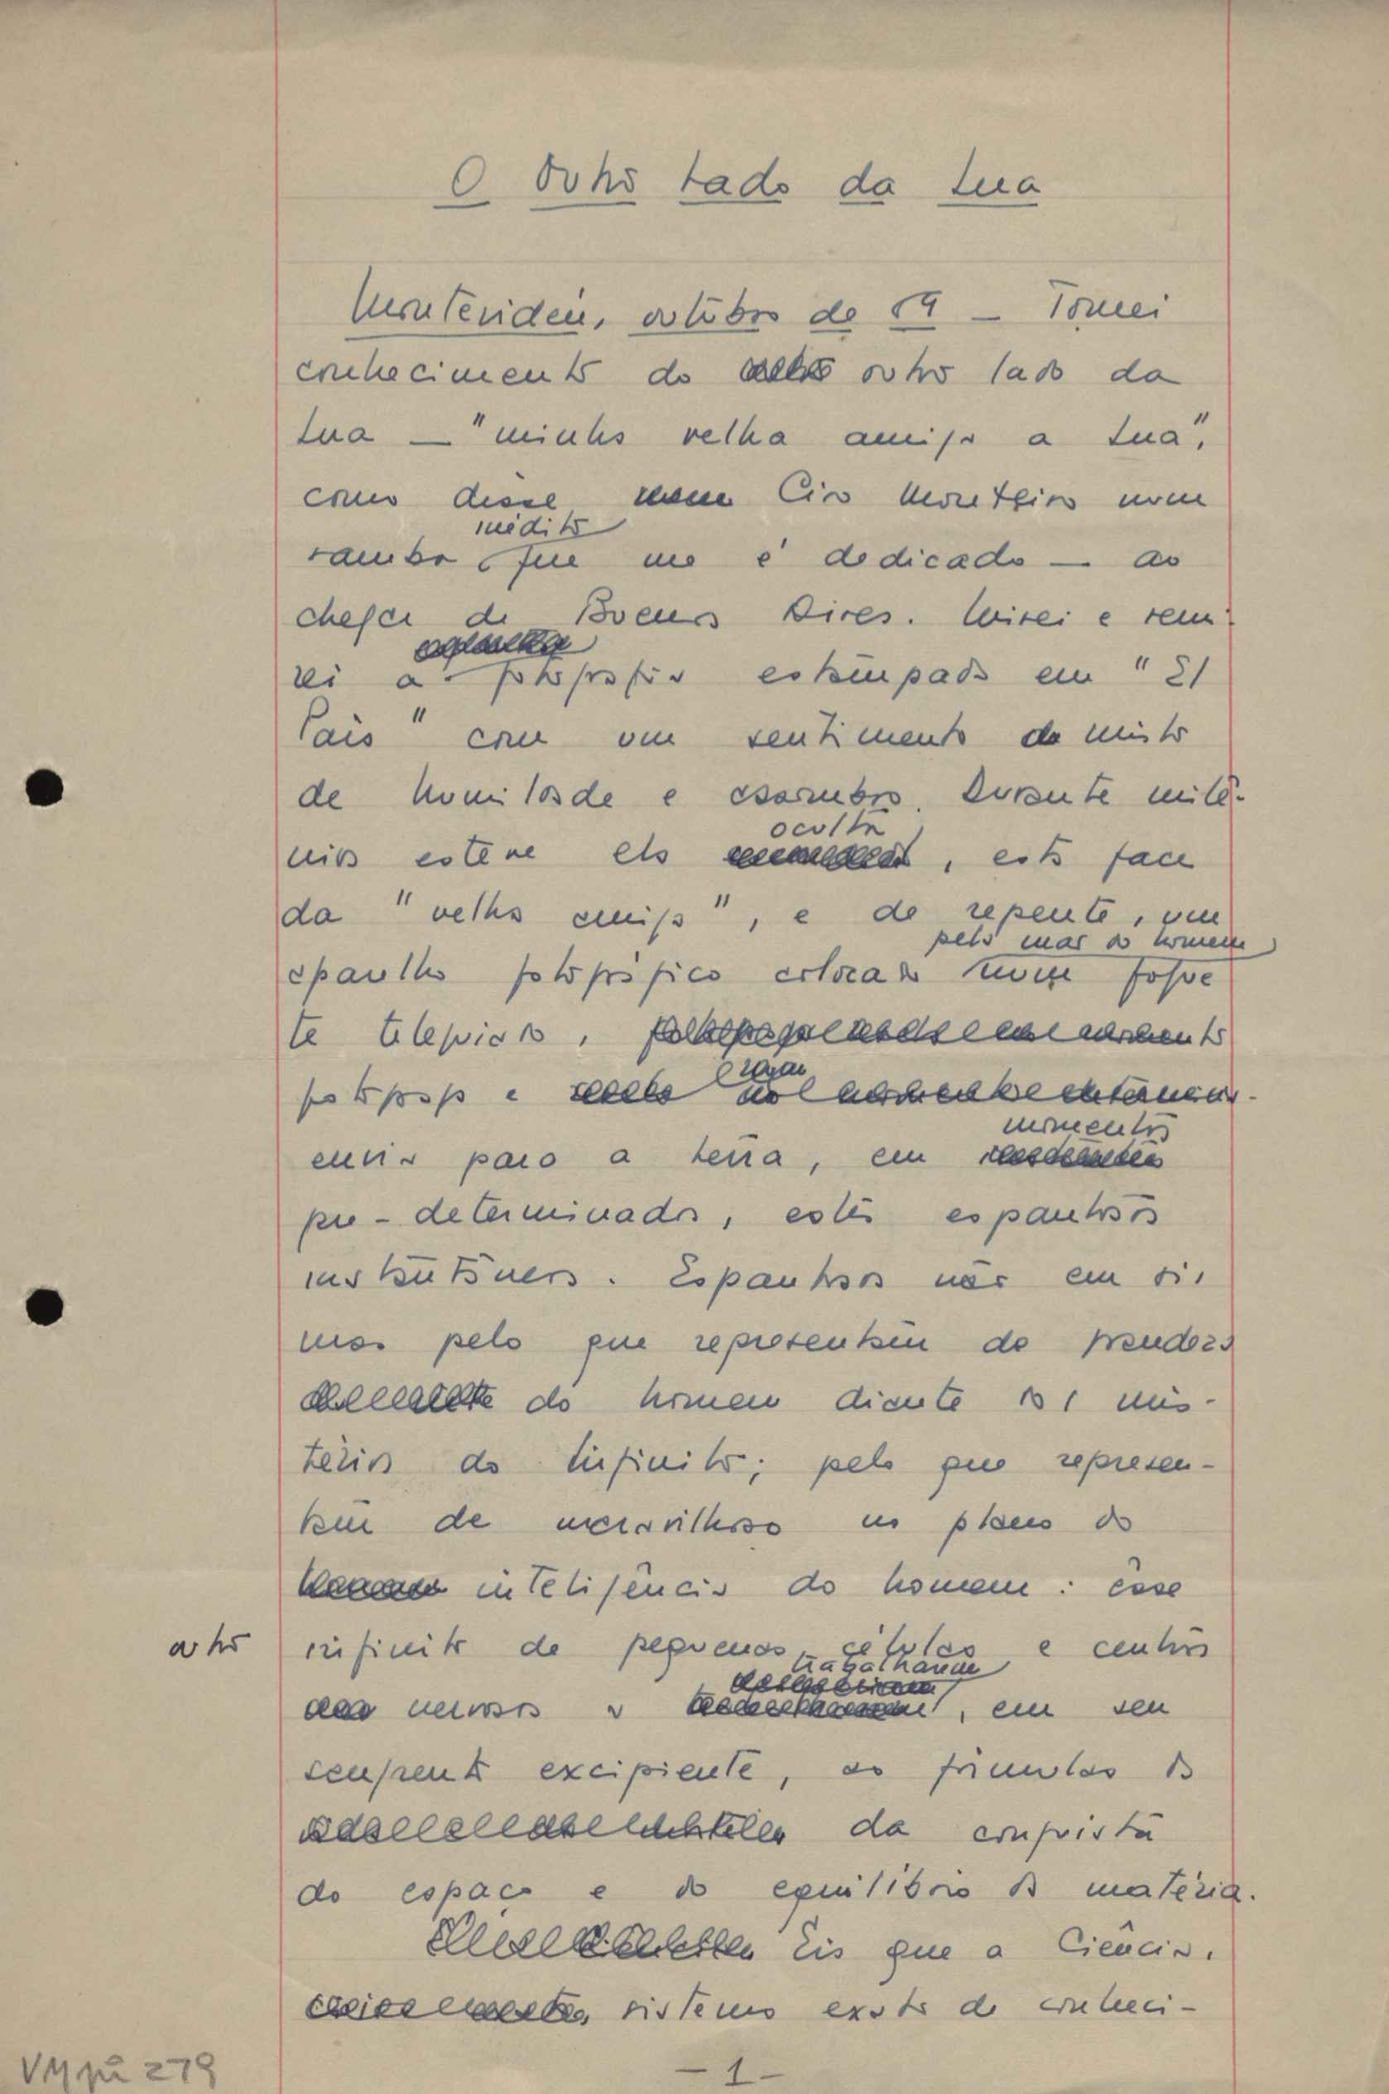 O Outro Lado da Lua
Montevidéu, outubro de 59 — Tomei
conhecimento do outro lado da
Lua — "minha velha amiga a Lua",
como disse Ciro Monteiro num
inédito
samba que me é dedicado — ao
chegar de Buenos Aires. Mirei e remi-
rei a fotografia estampada em "El
País" com um sentimento misto
de humildade e assombro. Durante milê-
oculta
nios esteve ela , esta face
da "velha amiga", e de repente, um
pelo mar do homem
aparelho fotográfico colocado num fogue
te teleguiado,
fotografa e
momentos
envia para a terra, em
pre-determinados, estes espantosos
instantâneos. Espantosos não em si,
mas pelo que representam de grandeza
do homem diante dos mis-
térios do Infinito; pelo que represen-
tam de maravilhoso no plano da
inteligência do homem: êsse
outro infinito de pequenas células e centros
trabalhando
nervosos a , em seu
sangrento excipiente, as fórmulas da
da conquista
do espaço e do equilíbrio da matéria.
Eis que a Ciência,
sistema exato de conheci-
— 1 —
VM pi 279